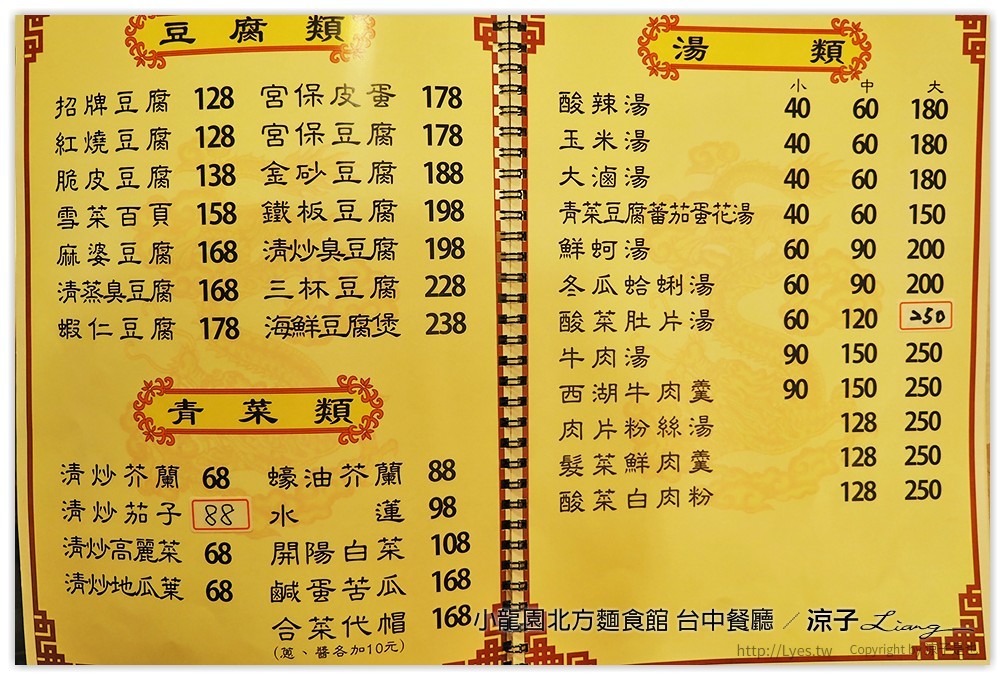 豆腐類
招牌豆腐 128 宮保皮蛋 178
紅燒豆腐 128 宮保豆腐 178
脆皮豆腐 138 金砂豆腐 188
雪菜百頁 158 鐵板豆腐 198
麻婆豆腐 168 清炒臭豆腐 198
清蒸臭豆腐 168 三杯豆腐 228
蝦仁豆腐 178 海鮮豆腐煲 238
青菜類
清炒芥蘭 68 蠔油芥蘭 88
清炒茄子 88 水蓮 98
清炒高麗菜 68 開陽白菜 108
清炒地瓜葉 68 鹹蛋苦瓜 168
合菜代帽 168
(蔥、醬各加10元)
湯類
小 中 大
酸辣湯 40 60 180
玉米湯 40 60 180
大滷湯 40 60 180
青菜豆腐蕃茄蛋花湯 40 60 150
鮮蚵湯 60 90 200
冬瓜蛤蜊湯 60 90 200
酸菜肚片湯 60 120 250
牛肉湯 90 150 250
西湖牛肉羹 90 150 250
肉片粉絲湯 128 250
髮菜鮮肉羹 128 250
酸菜白肉粉 128 250
小龍園北方麵食館 台中餐廳 / 涼子 Liang
http://Lyes.tw Copyright